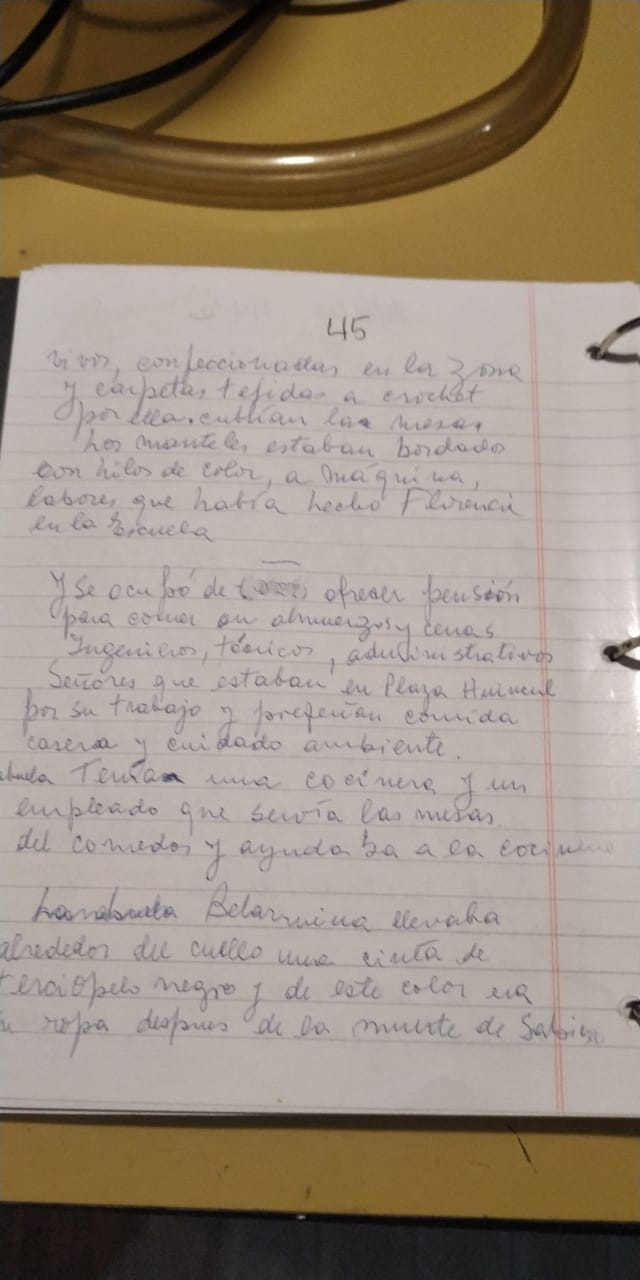 45
vivos, confeccionadas en la zona
y carpetas tejidas a crochet
por ella. cubrían las mesas.
Los manteles estaban bordados
con hilos de color, a máquina,
labores que había hecho Florencia
en la Escuela
Y se ocupó de ofrecer pensión
para comer en almuerzos y cenas
Ingenieros, técnicos, administrativos
Señores que estaban en Plaza Huincul
por su trabajo y preferían comida
casera y cuidado ambiente.
abuela Tenía una cocinera y un
empleado que servía las mesas
del comedor y ayudaba a la cocinera
La abuela Belarmina llevaba
alrededor del cuello una cinta de
terciopelo negro y de este color era
su ropa despues de la muerte de Sabino